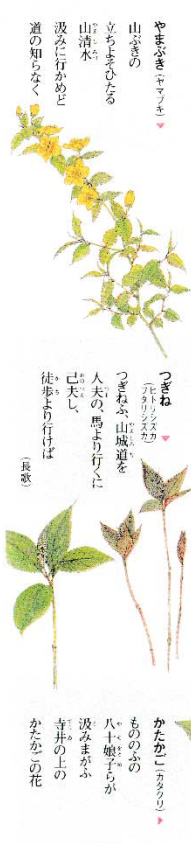 やまぶき（ヤマブキ）
山ぶきの
立ちよそひたる
山清水
やましみづ
汲みに行かめど
道の知らなく
つぎね（ヒトリシズカ フタリシズカ）
つぎねふ、山城道を
やましろぢ
人夫の、馬より行くに
つま
己夫し、
おのづま
徒歩より行けば
かち
（長歌）
かたかご（カタクリ）
もののふの
八十娘子らが
やそをとめ
汲みまがふ
く
寺井の上の
てらゐ
かたかごの花